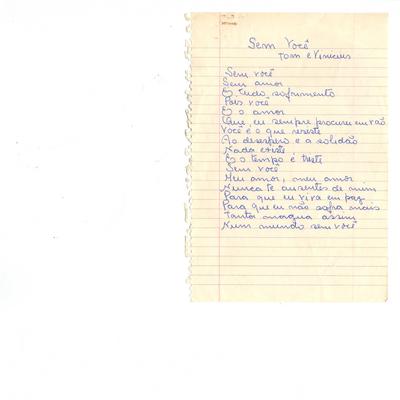 Sem Você
Tom e Vinicius
Sem você
Sem amor
É tudo sofrimento
Pois você
É o amor
Que eu sempre procurei em vão
Você é o que resiste
Ao desespero e a solidão
Nada existe
E o tempo é triste
Sem você
Meu amor, meu amor
Nunca te ausentes de mim
Para que eu viva em paz
Para que eu não sofra mais
Tanta magua assim
Num mundo sem você